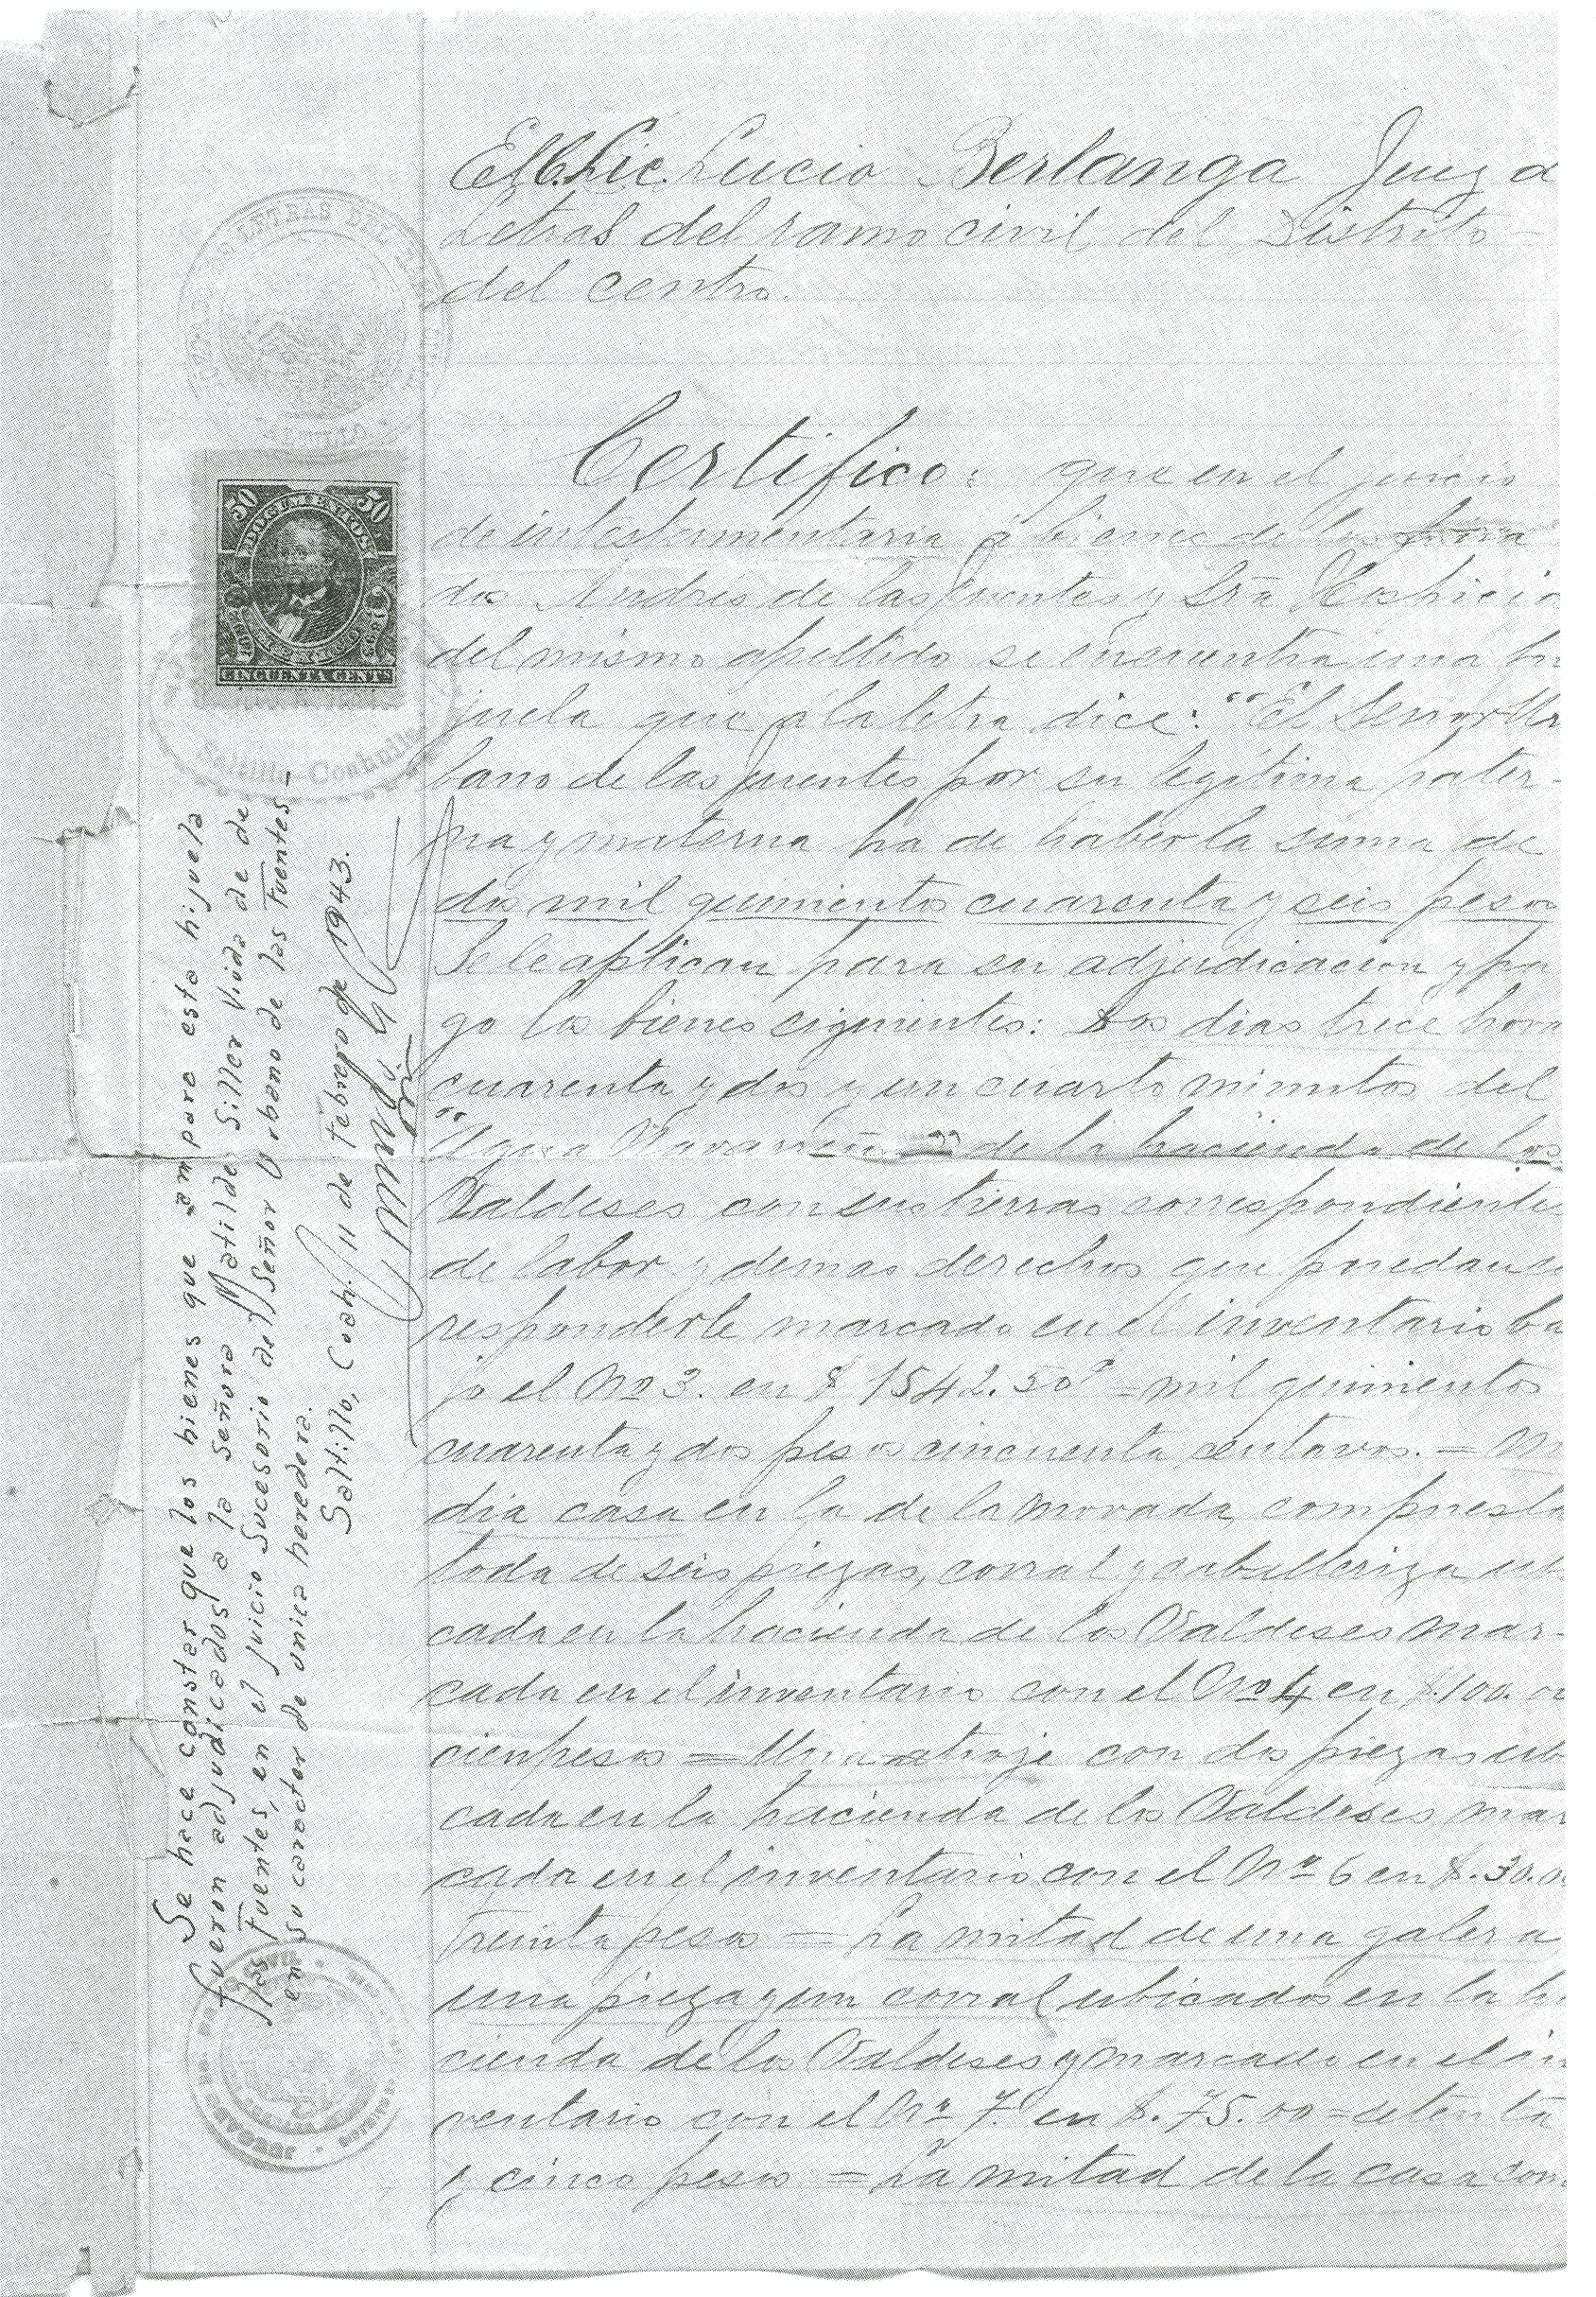 El C. Lic. Lucio Berlanga Juez d
Letras del ramo civil del Distrito
del centro.
Certifico: que en el juicio
de intestamentaria á bienes de los fina
dos Andrés de las fuentes y Sra Hospicia
del mismo apellido se encuentra una hi
juela que á la letra dice: "El Señor Ur
bano de las fuentes por su legítima pater-
na y materna ha de haber la suma de
dos mil quinientos cuarenta y seis pesos
Se le aplican para su adjudicacion y pa
go los bienes siguientes: Dos dias trece hora
cuarenta y dos y un cuarto minutos del
"Agua Navarreña" de la hacienda de los
Valdeses con sus tierras correspondientes
de labor y demas derechos que puedan co
responderle marcado en el inventario ba
jo el No 3. en $ 1542.50 = mil quinientos
cuarenta y dos pesos cincuenta centavos. = M
dia casa en la de la morada, compuesta
toda de seis piezas, corral y caballeriza ubi
cada en la hacienda de los Valdeses mar-
cada en el inventario con el No 4 en $.100.00
cien pesos = Una troje con dos piezas ubi
cada en la hacienda de los Valdeses mar
cada en el inventario con el No 6 en $.30.00
treinta pesos = La mitad de una galera
una pieza y un corral ubicados en la ha
cienda de los Valdeses y marcado en el in
ventario con el No 7. en $.75.00 = setenta
y cinco pesos = La mitad de la casa con
50 50
DOCUMENTOS
MEXICO
CINCUENTA CENTS
SALTILLO
Saltillo-Coahuila
Se hace constar que los bienes que ampara esta hijuela
fueron adjudicados a la Señora Matilde Siller Viuda de de
las Fuentes, en el juicio Sucesorio del Señor Urbano de las Fuentes-
en su caracter de unica heredera.
Saltillo, Coah. 11 de febrero de 1943.